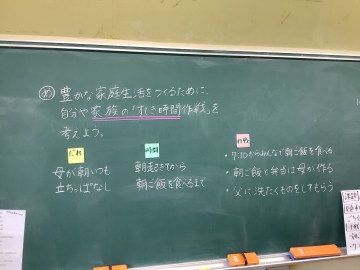 め 豊かな家庭生活をつくるために、
自分や家族の「すてき時間作戦」を
考えよう。
だれ
母が朝いつも
立ちっぱなし
時間
朝起きてから
朝ご飯を食べるまで
・7:10からみんなで朝ご飯を食べる
・朝ご飯と弁当は母が作る
・父に洗たくものをしてもらう